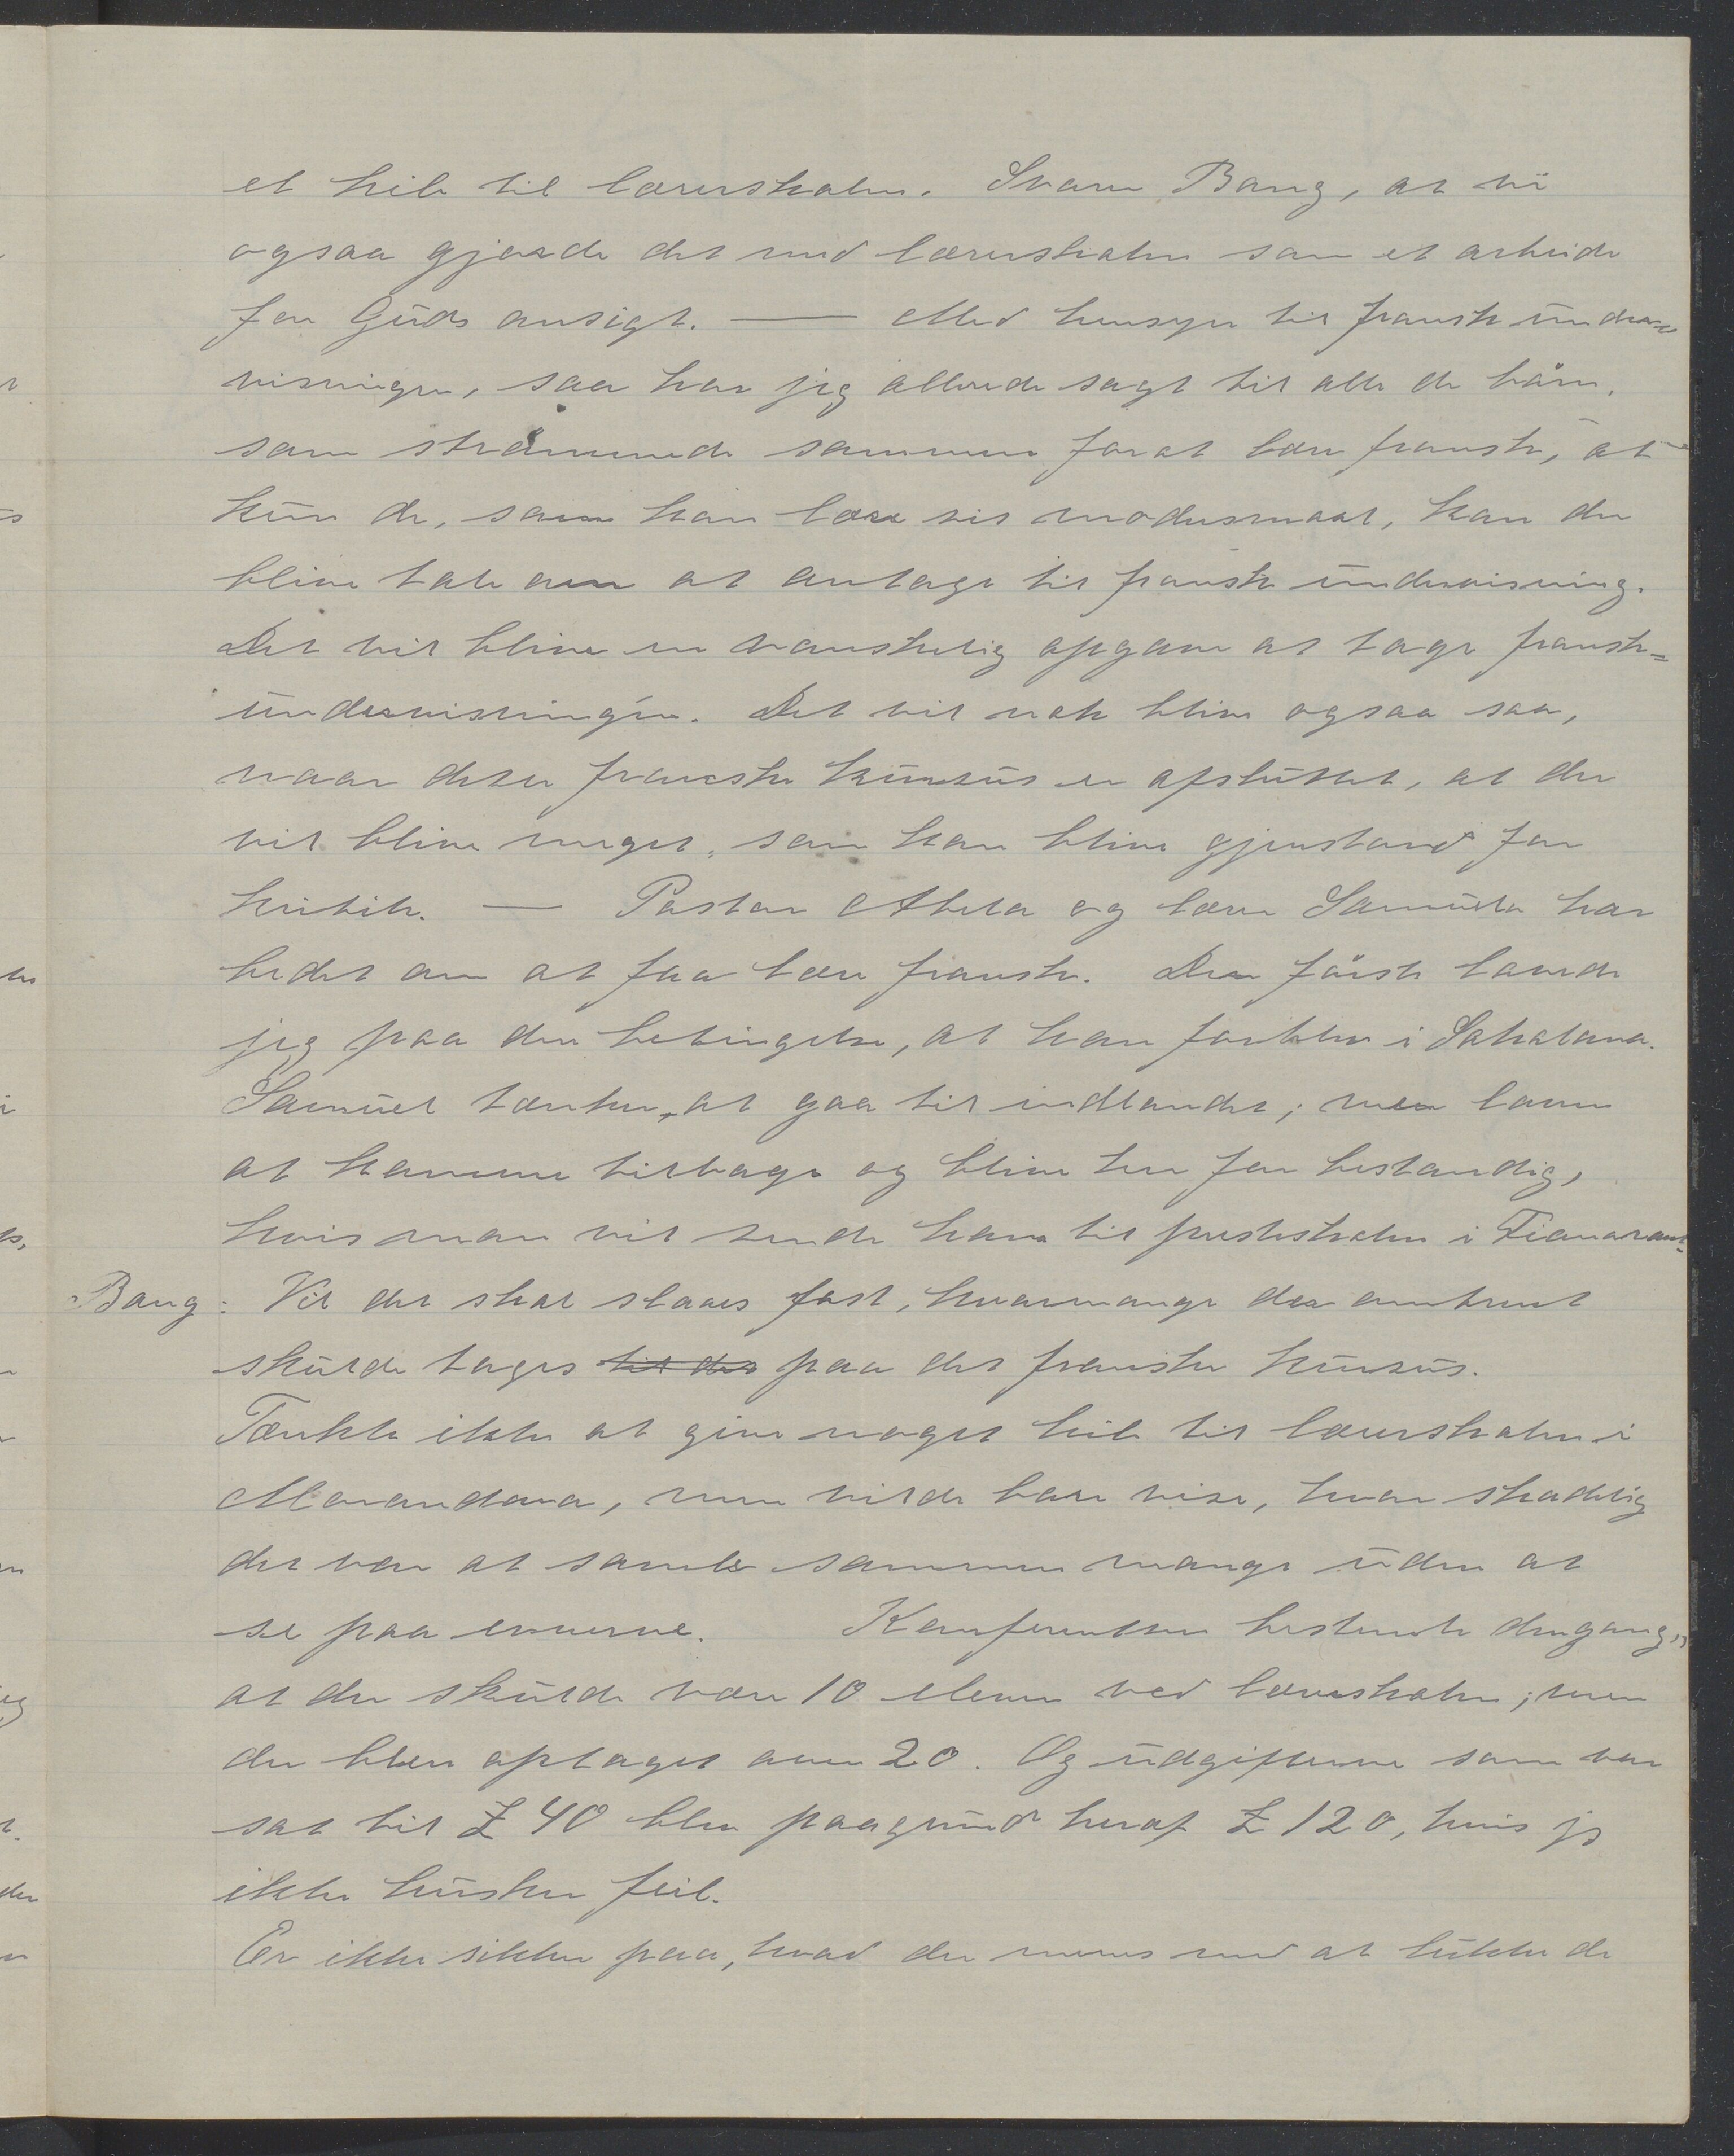 et hib til lærerskolen. Svarer Bang, at vi
ogsaa gjorde det med lærerskolen som et arbeide
for Guds ansigt. — Med hensyn til fransk underv=
visningen, saa har jeg allerede sagt til alle de børn,
som strømmede sammen forat lære fransk, at
kun de, som kan læse sit modersmaal, kan der
blive tale om at antage til fransk undervisning.
Det vil blive en vanskelig opgave at tage fransk=
undervisningen. Det vil nok blive ogsaa saa,
naar dette franske kursus er afsluttet, at der
vil blive meget, som kan blive gjenstand for
kritik. — Pastor Abela og lærer Samuela har
bedet om at faa lære fransk. Den første lovede
jeg paa den betingelse, at han forblev i Sakalava.
Samuel tænker at gaa til indlandet; men lover
at komme tilbage og blive her for bestandig,
hvis man vil sende ham til presteskolen i Fianarant.
Bang: Vil det skal slaaes fast, hvormange der omtrent
skulde tages til det paa det franske kursus.
Tænkte ikke at give noget hib til lærerskolen i
Morondava, men vilde bare vise, hvor skadelig
det var at samle sammen mange uden at
se paa evnerne. Konferentsen bestemte dengang,
at der skulde være 10 elever ved lærerskolen; men
der blev optaget over 20. Og udgifterne som var
sat til £ 40 blev paagrund heraf £ 120, hvis jeg
ikke husker feil.
Er ikke sikker paa, hvad der menes med at lukke de